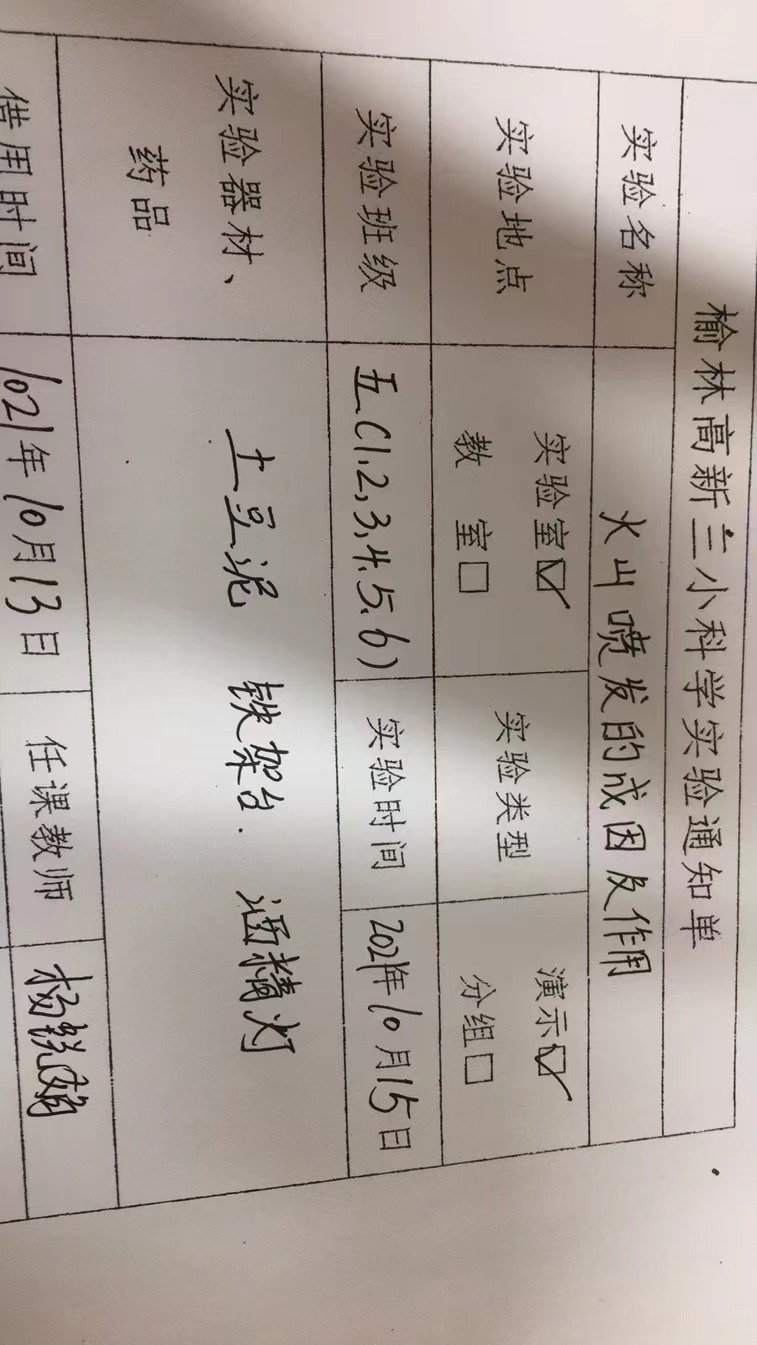 榆林高新三小科学实验通知单
实验名称 火山喷发的成因及作用
实验地点 实验室☑ 教 室□ 实验类型 演示☑ 分组□
实验班级 五(1、2、3、4、5、6) 实验时间 2021年10月15日
实验器材、药品 土豆泥 铁架台. 酒精灯
借用时间 1021年10月13日 任课教师